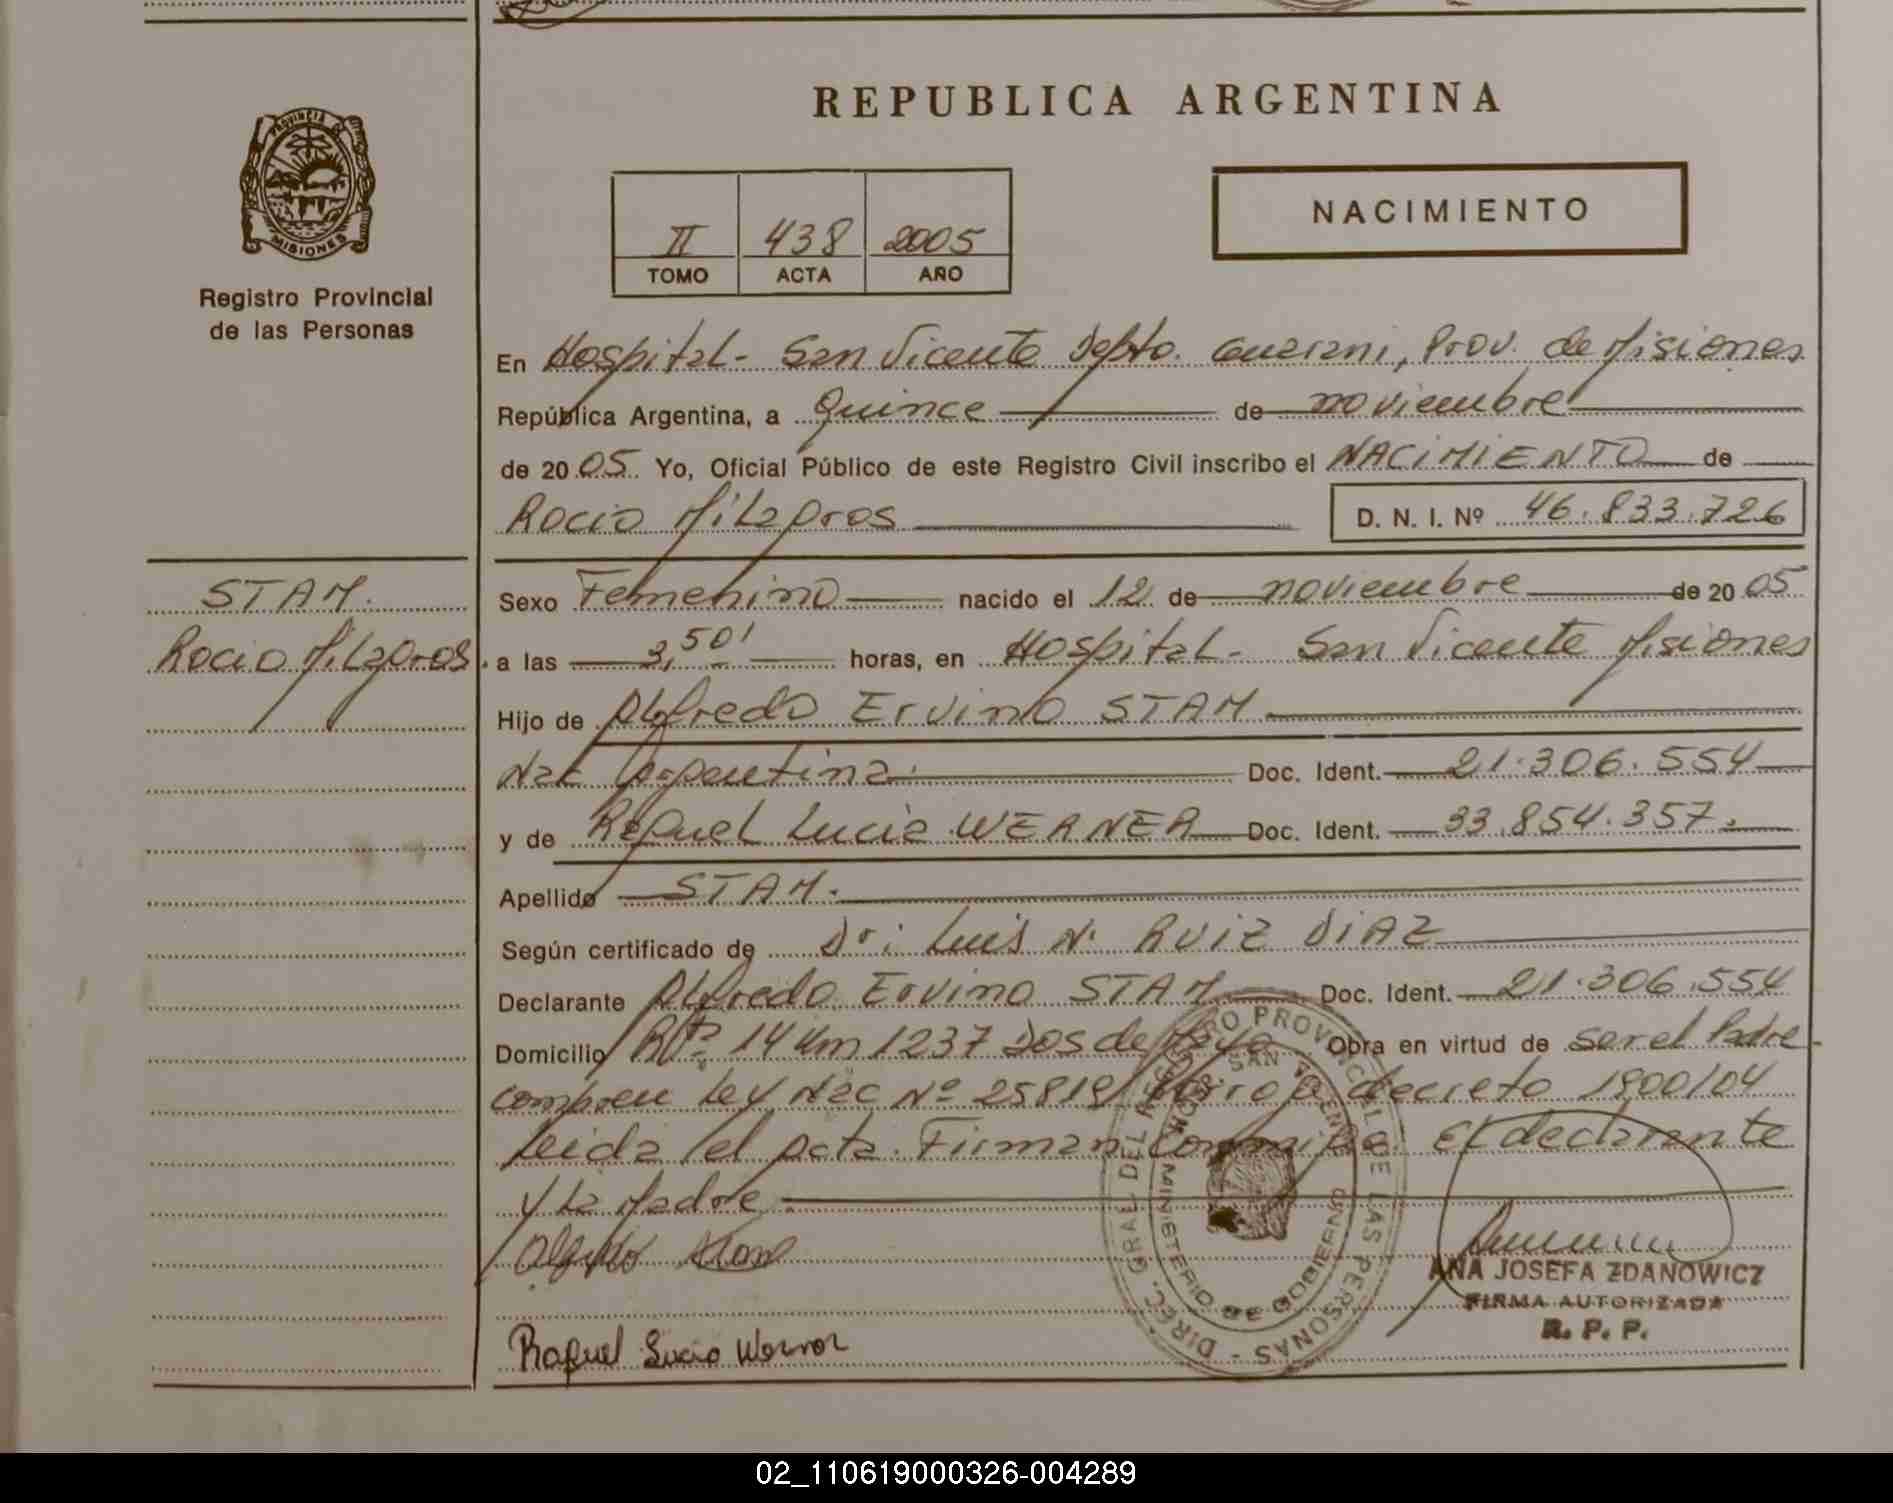 REPUBLICA ARGENTINA
PROVINCIA DE
MISIONES
Registro Provincial
de las Personas
II 438 2005
TOMO ACTA AÑO
NACIMIENTO
En Hospital - San Vicente Depto. Guarani, Prov. de Misiones
República Argentina, a Quince de noviembre
de 2005 Yo, Oficial Público de este Registro Civil inscribo el NACIMIENTO de
Rocio Milagros D. N. I. Nº 46.833.726
STAM.
Rocio Milagros.
Sexo Femenino nacido el 12 de noviembre de 2005
a las 3,50' horas, en Hospital - San Vicente Misiones
Hijo de Alfredo Ervino STAM
Nac Argentina. Doc. Ident. 21.306.554
y de Raquel Lucia WERNER Doc. Ident. 33.854.357.
Apellido STAM.
Según certificado de Dr: Luis N. RUIZ DIAZ
Declarante Alfredo Ervino STAM Doc. Ident. 21.306.554
Domicilio Rta. 14 Km 1237 Dos de Mayo Obra en virtud de ser el Padre
Ley Nac Nº 25819 decreto 1800/04
Leida el acta. Firman conmigo. El declarante
y la Madre.
Alfredo Stam
ANA JOSEFA ZDANOWICZ
FIRMA AUTORIZADA
R. P. P.
Raquel Lucia Werner
DIREC. GRAL DEL REGISTRO PROVINCIAL DE LAS PERSONAS -
MINISTERIO DE GOBIERNO
SAN VICENTE
02_110619000326-004289